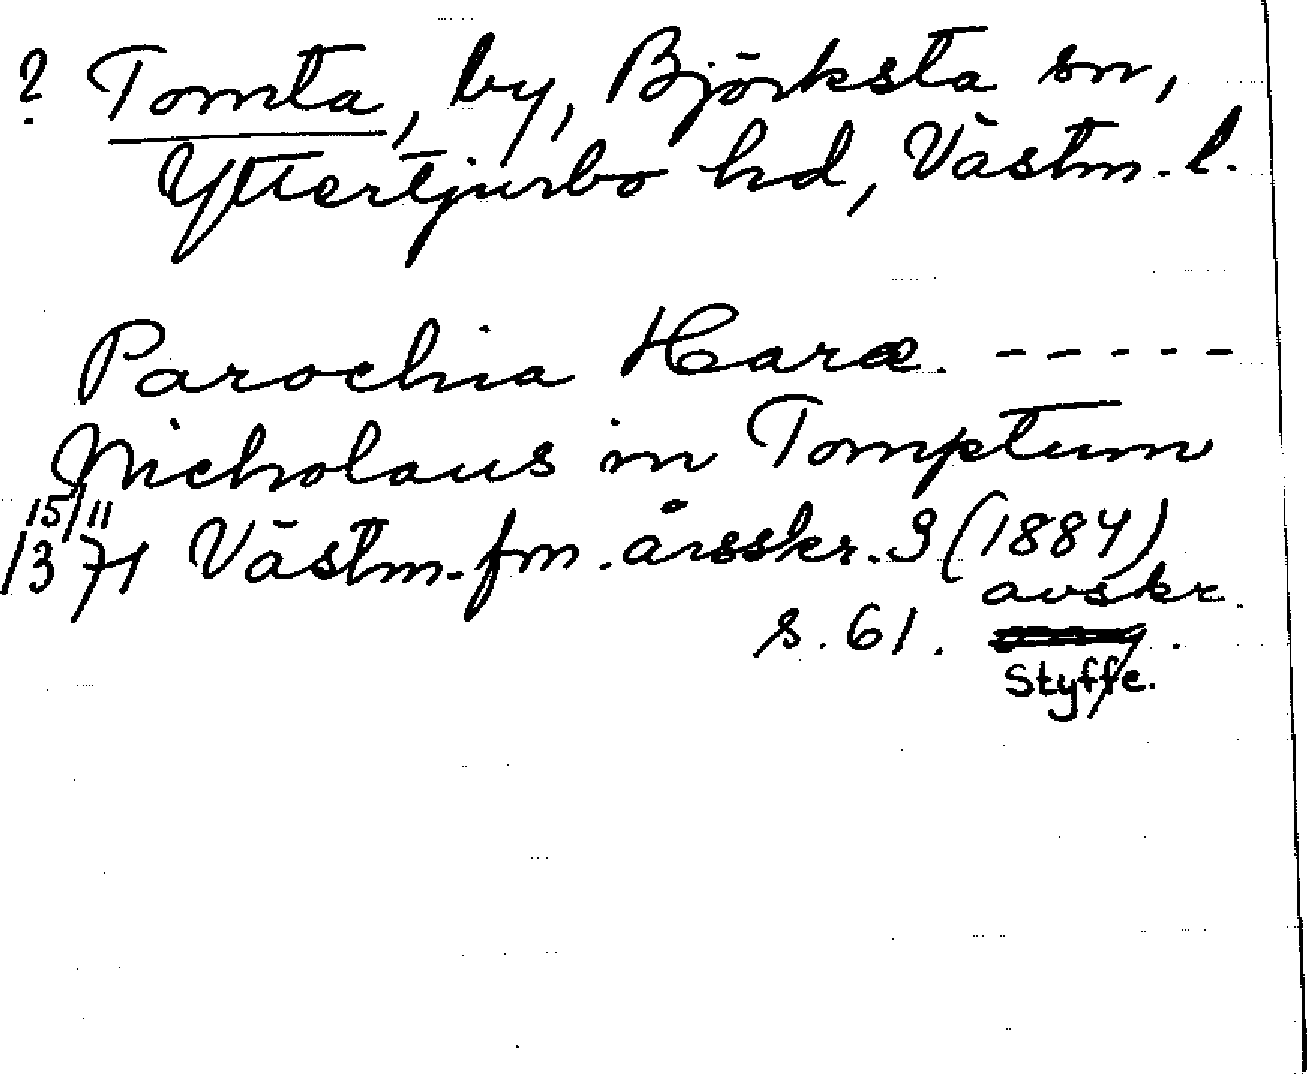 ? Tomta, by, Björksta sn,
Yttertjurbo hd, Västm. l.
Parochia Haræ. -----
Nicholaus in Tomptum
15/11
1371 Västm. fm. årsskr. 3 (1884)
avskr.
s. 61.
Styffe.